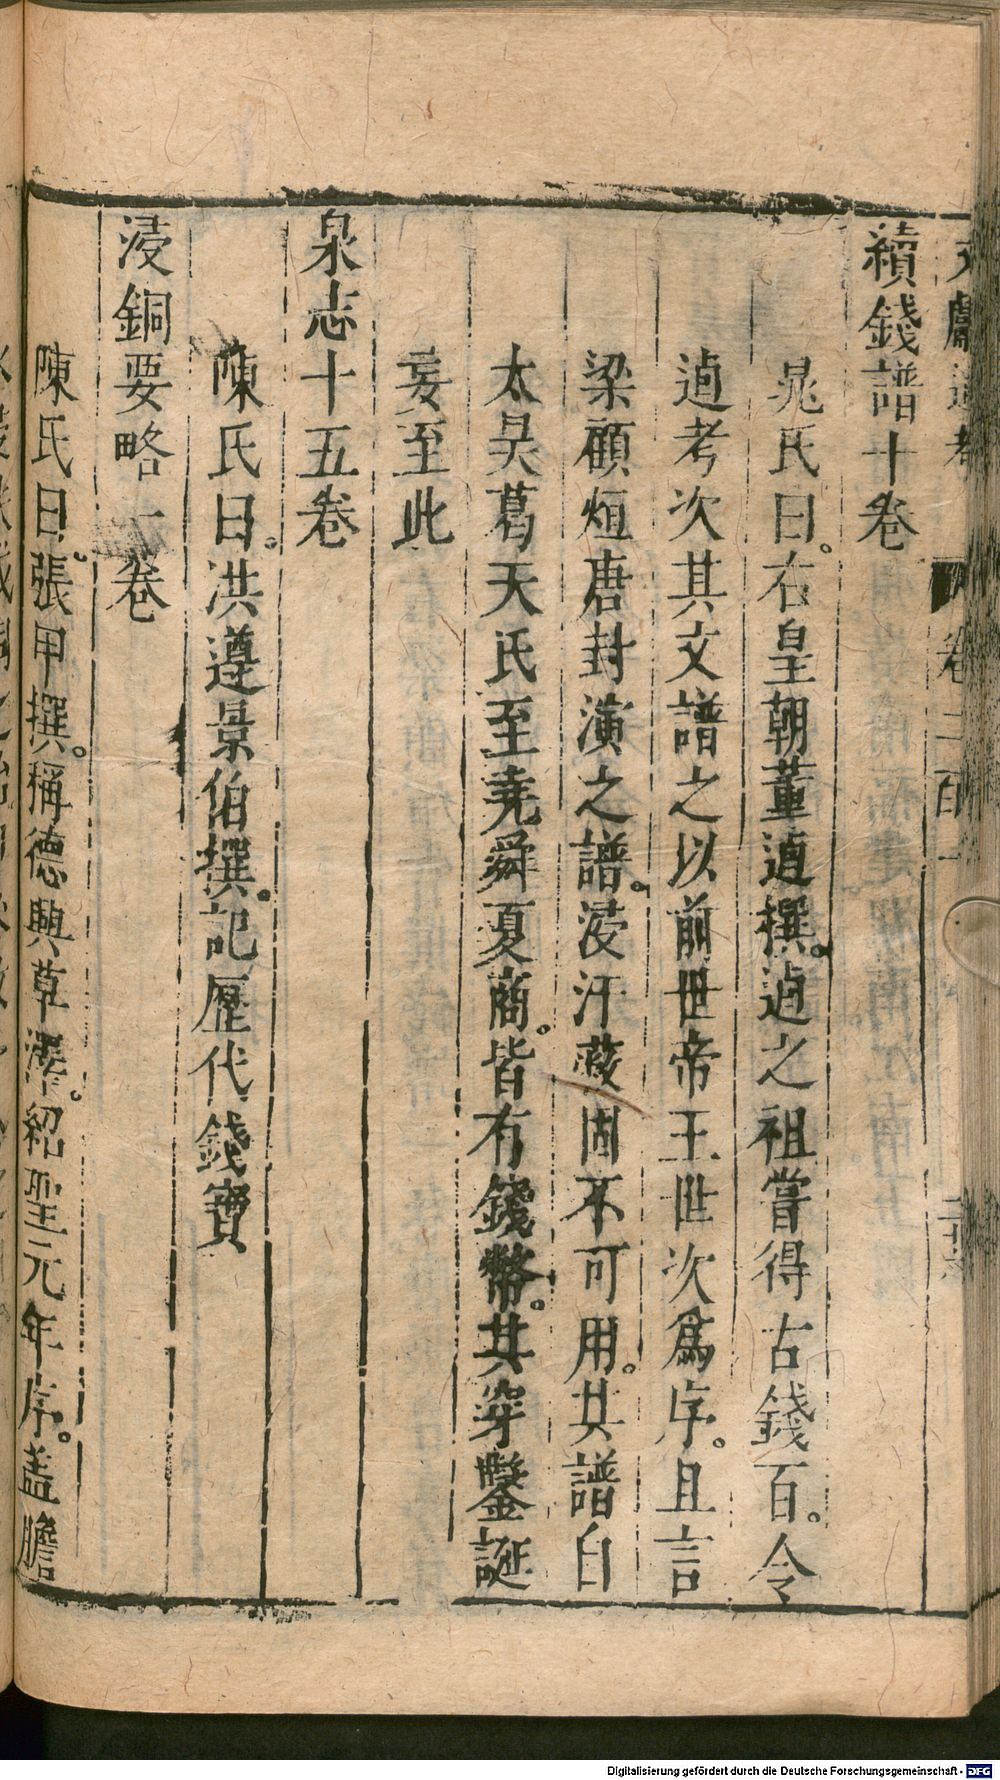 文獻通考 卷二百一
續錢譜十卷
晁氏曰右皇朝董逌撰逌之祖嘗得古錢百令
逌考次其文譜之以前世帝王世次爲序且言
梁顧烜唐封演之譜浸汗蔑固不可用其譜自
太昊葛天氏至堯舜夏商皆有錢幣其穿鑿誕
妄至此
泉志十五卷
陳氏曰洪遵景伯撰記歷代錢寶
浸銅要略一卷
陳氏曰張甲撰稱德興草澤紹聖元年序蓋膽
Digitalisierung gefördert durch die Deutsche Forschungsgemeinschaft - DFG